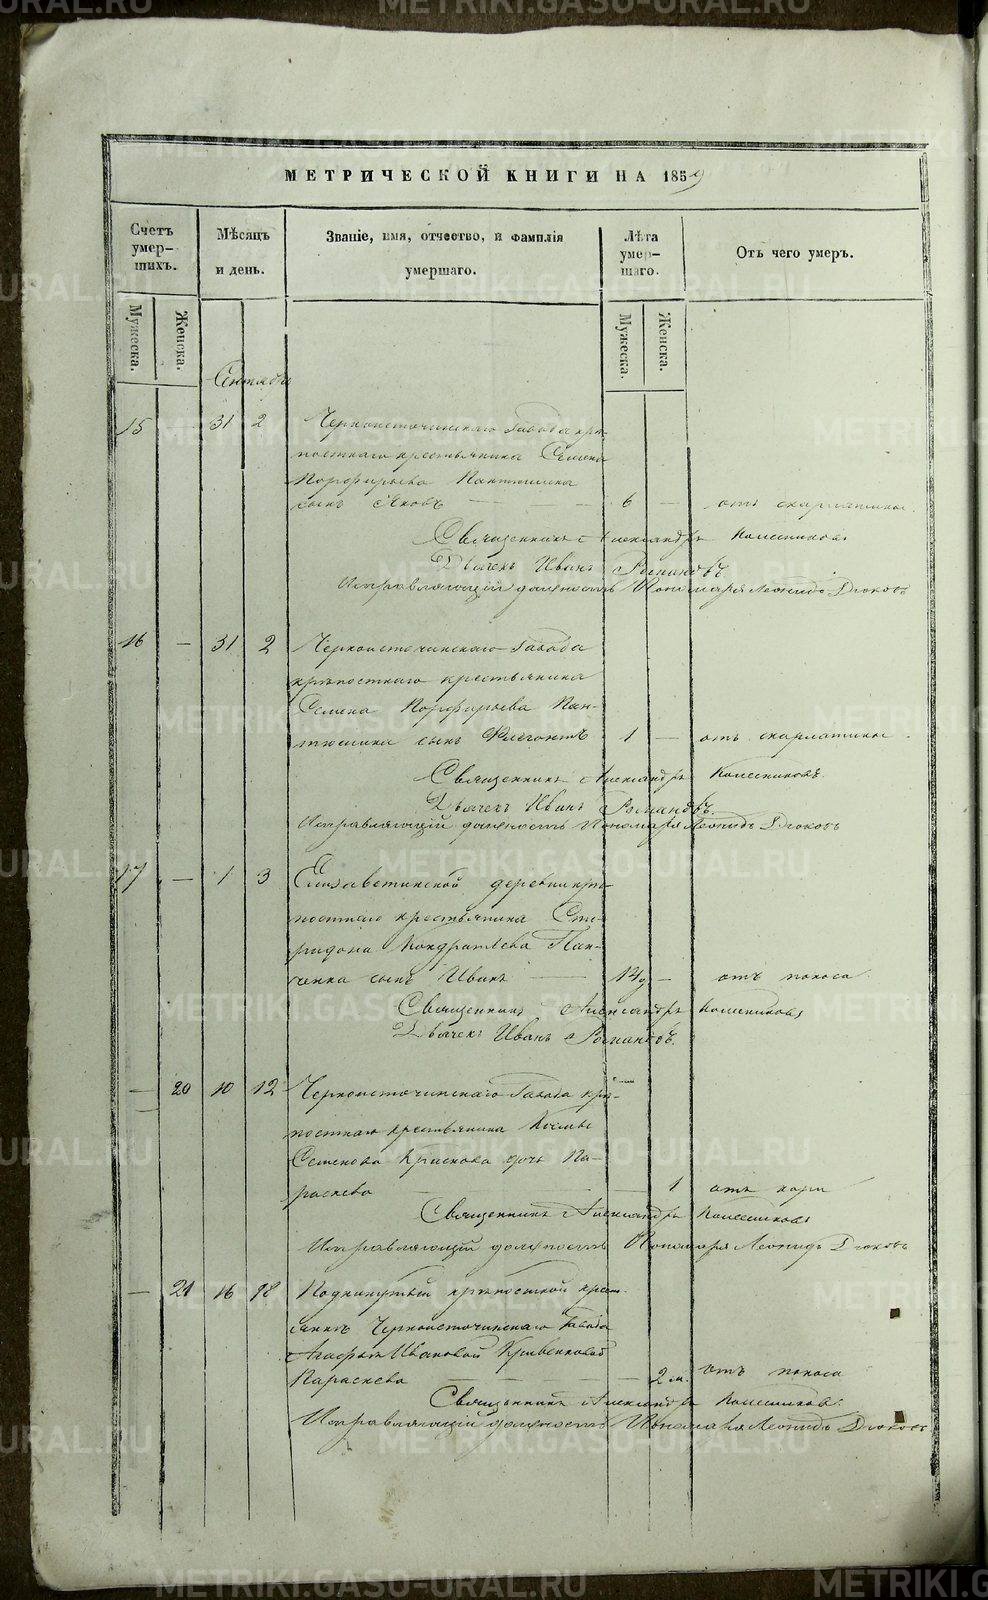 МЕТРИЧЕСКОЙ КНИГИ НА 1859
Счетъ умер-шихъ.
Мѣсяцъ и день.
Званіе, имя, отчество, и фамилія умершаго.
Лѣта умер-шаго.
Отъ чего умеръ.
Мужеска.
Женска.
Мужеска.
Женска.
Сентябрь
15 – 31 2 Черноисточинскаго Завода крѣ-
постнаго крестьянина Семена
Порфирьева Пантюшина
сынъ Яковъ — 6 — отъ скарлатины.
Священникъ Александръ Колесниковъ
Дьячекъ Иванъ Романовъ.
Исправляющій должность Пономаря Леонидъ Дюковъ
16 – 31 2 Черноисточинскаго Завода
крѣпостнаго крестьянина
Семена Порфирьева Пан-
тюшина сынъ Флегонтъ 1 — отъ скарлатины.
Священникъ Александръ Колесниковъ.
Дьячекъ Иванъ Романовъ.
Исправляющій должность Пономаря Леонидъ Дюковъ
17 – 1 3 Елизаветинской деревни крѣ-
постнаго крестьянина Спи-
ридона Кондратьева Пан-
ченка сынъ Иванъ — — отъ поноса.
Священникъ Александръ Колесниковъ
Дьячекъ Иванъ Романовъ.
– 20 10 12 Черноисточинскаго Завода крѣ-
постнаго крестьянина Козмы
Семенова Краснова дочь Па-
раскева — 1 отъ кори
Священникъ Александръ Колесниковъ
Исправляющій должность Пономаря Леонидъ Дюковъ
– 21 16 18 Подкинутый крѣпостной крест-
янкѣ Черноисточинскаго Завода
Агафьѣ Ивановой Кривенковой
Параскева — 2 м. отъ поноса
Священникъ Александръ Колесниковъ.
Исправляющій должность Пономаря Леонидъ Дюковъ
METRIKI.GASO-URAL.RU